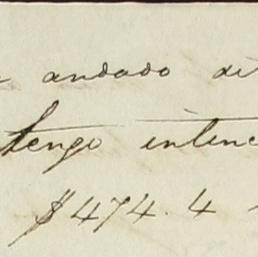 andado di
tengo intenc
$474.4